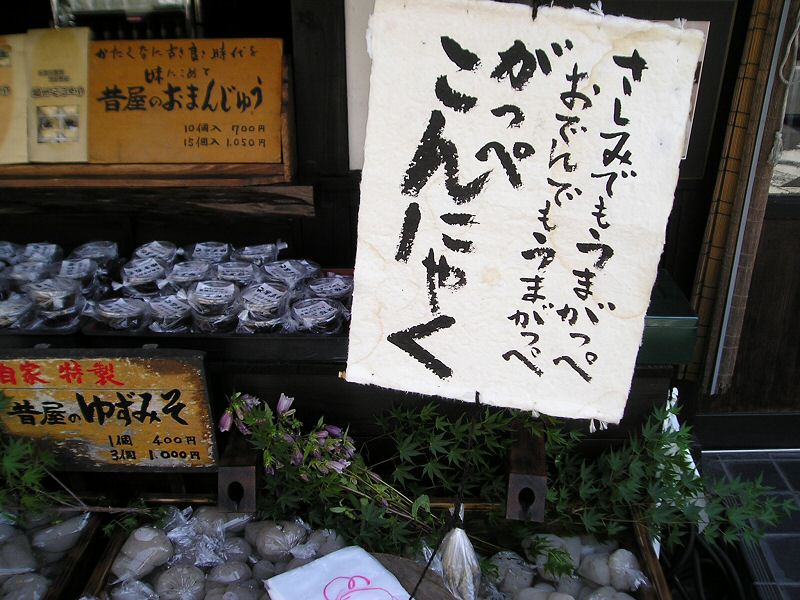 かたくなに古き良き時代を
味にこめて
昔屋のおまんじゅう
10個入 700円
15個入 1,050円
さしみでもうまがっぺ
おでんでもうまがっぺ
がっぺ
こんにゃく
自家特製
昔屋のゆずみそ
1個 400円
3個 1,000円